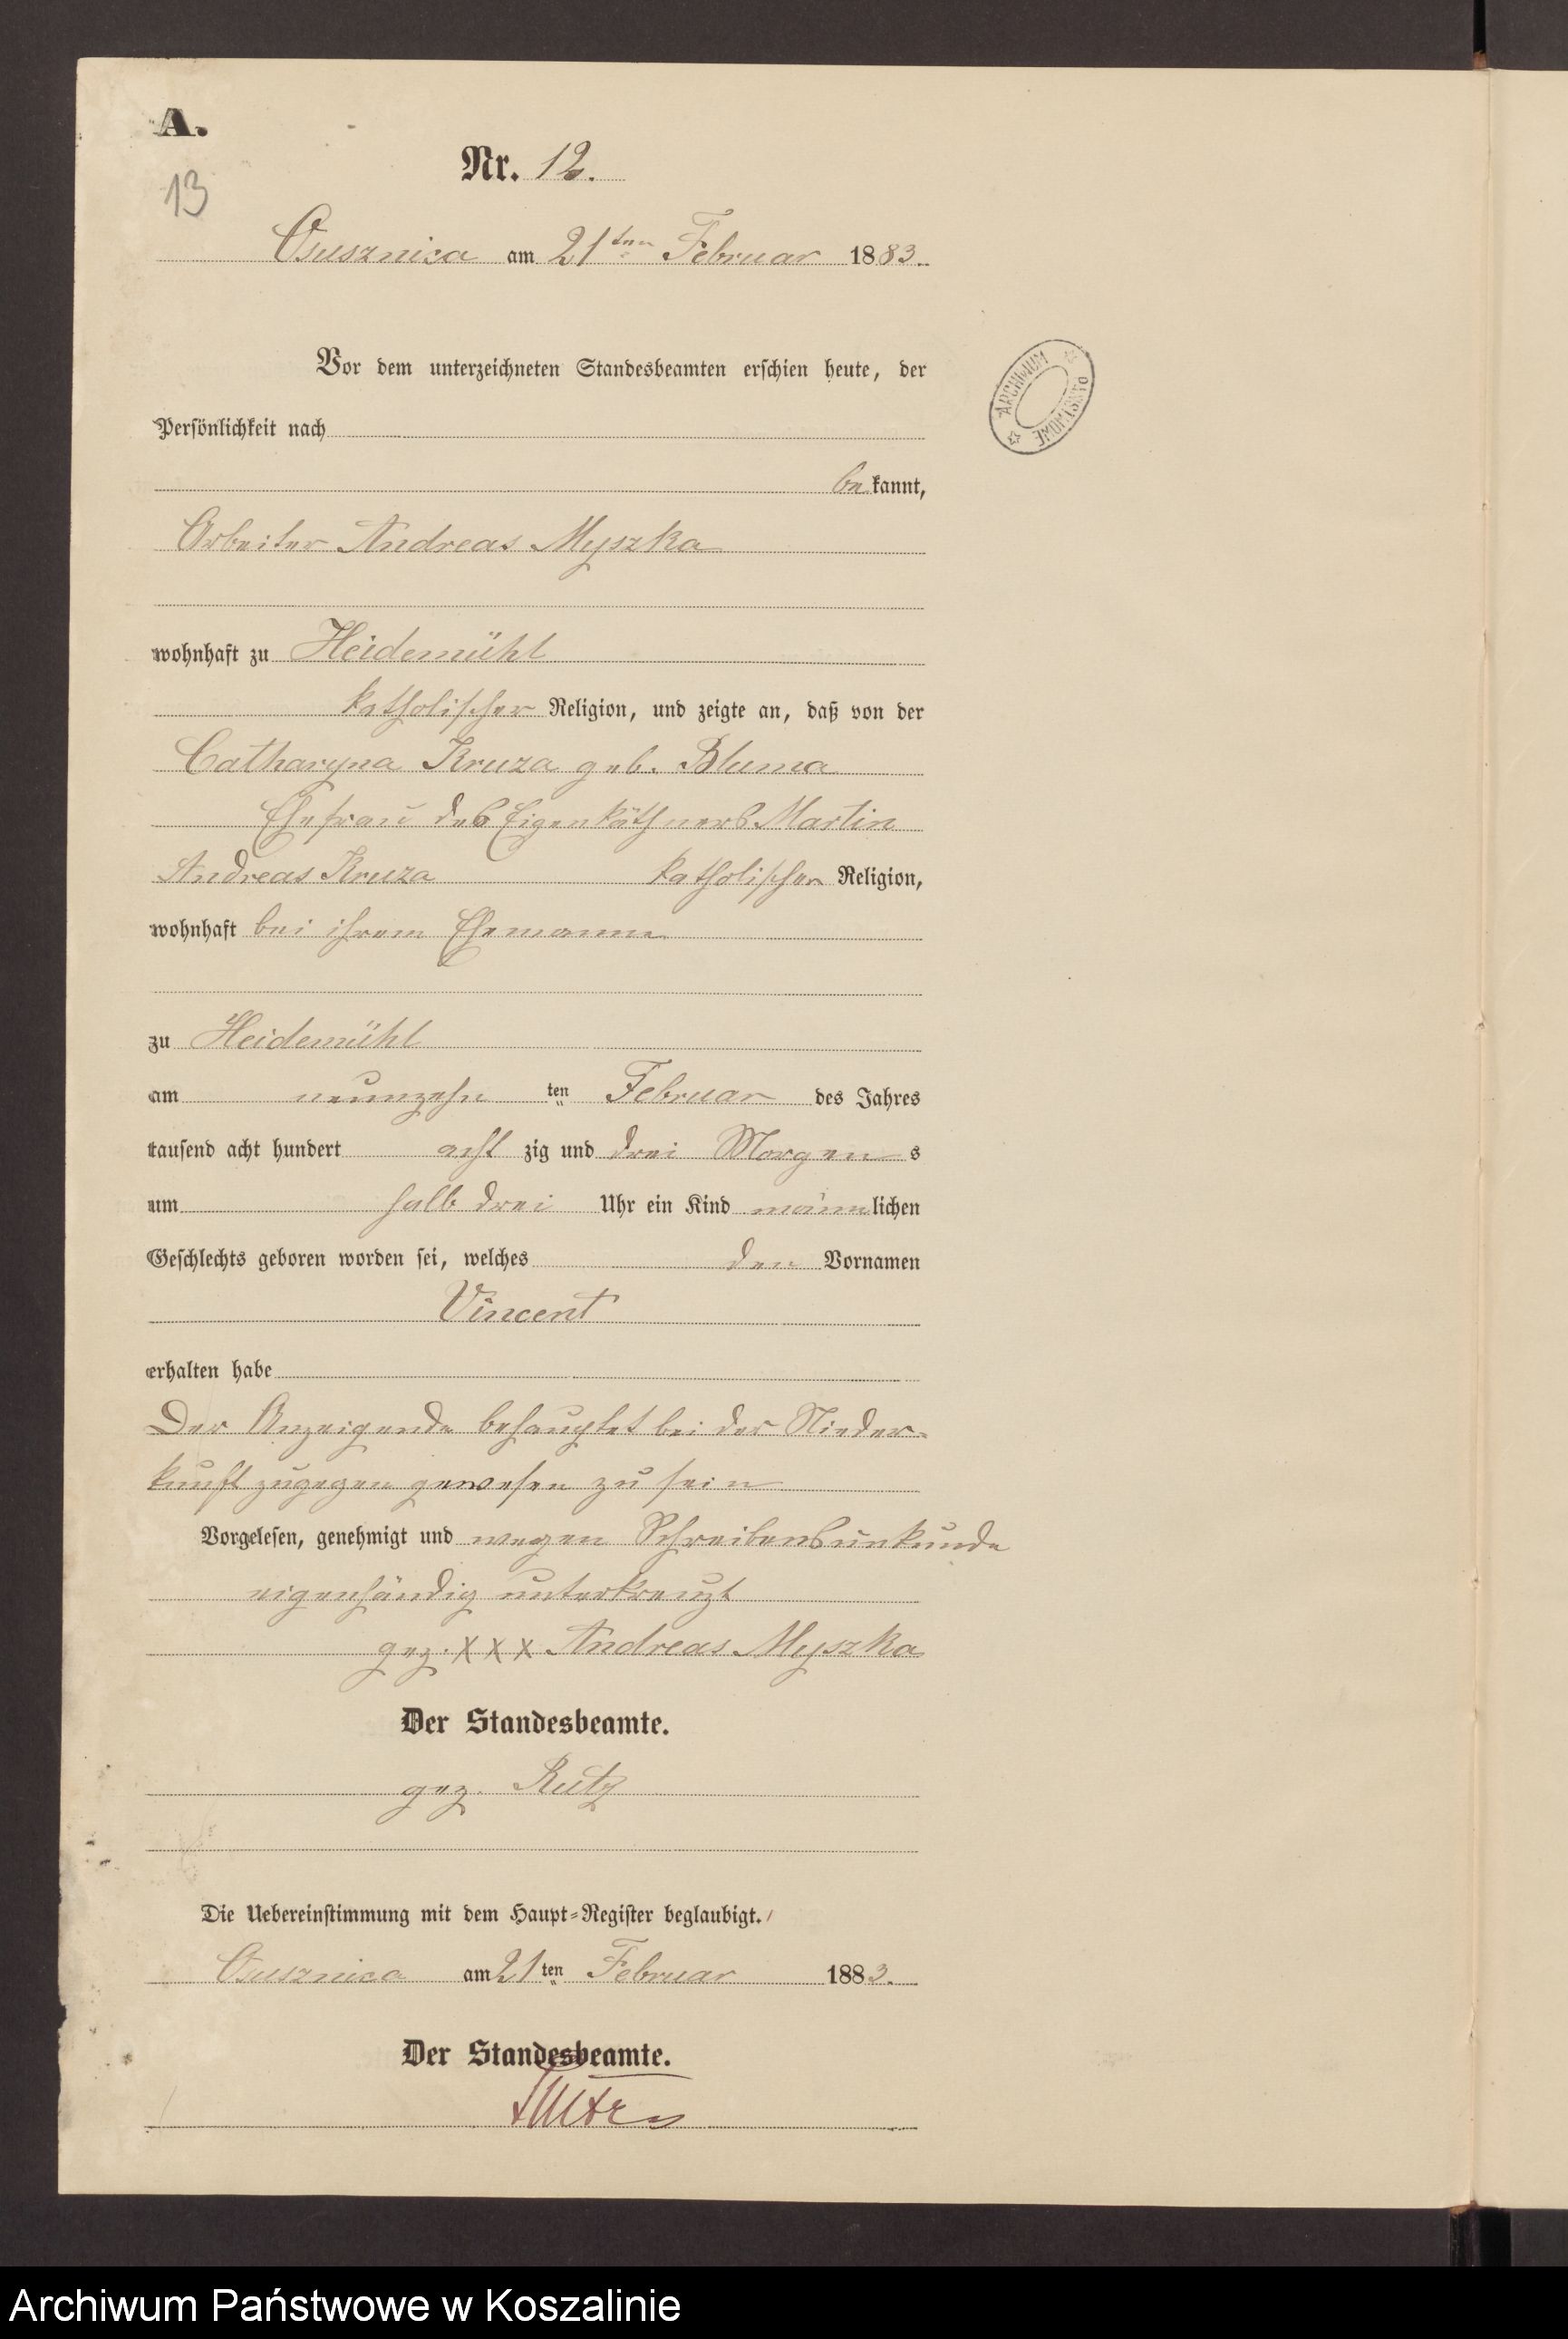 A.
13
Nr. 12.
Osusznica am 21ten Februar 1883.
Vor dem unterzeichneten Standesbeamten erschien heute, der
Persönlichkeit nach
bekannt,
Arbeiter Andreas Myszka
wohnhaft zu Heidemühl
katholischer Religion, und zeigte an, daß von der
Catharyna Kruza geb. Bluma
Ehefrau des Eigenkäthners Martin
Andreas Kruza katholischer Religion,
wohnhaft bei ihrem Ehemanne
zu Heidemühl
am neunzehn ten Februar des Jahres
tausend acht hundert acht zig und drei Morgens
um halb drei Uhr ein Kind männlichen
Geschlechts geboren worden sei, welches den Vornamen
Vincent
erhalten habe
Der Anzeigende behauptet bei der Nieder-
kunft zugegen gewesen zu sein
Vorgelesen, genehmigt und wegen Schreibensunkunde
eigenhändig unterkreuzt
gez. XXX Andreas Myszka
Der Standesbeamte.
gez. Rutz
Die Uebereinstimmung mit dem Haupt-Register beglaubigt.
Osusznica am 21ten Februar 1883.
Der Standesbeamte.
ARCHIWUM
PAŃSTWOWE
Archiwum Państwowe w Koszalinie